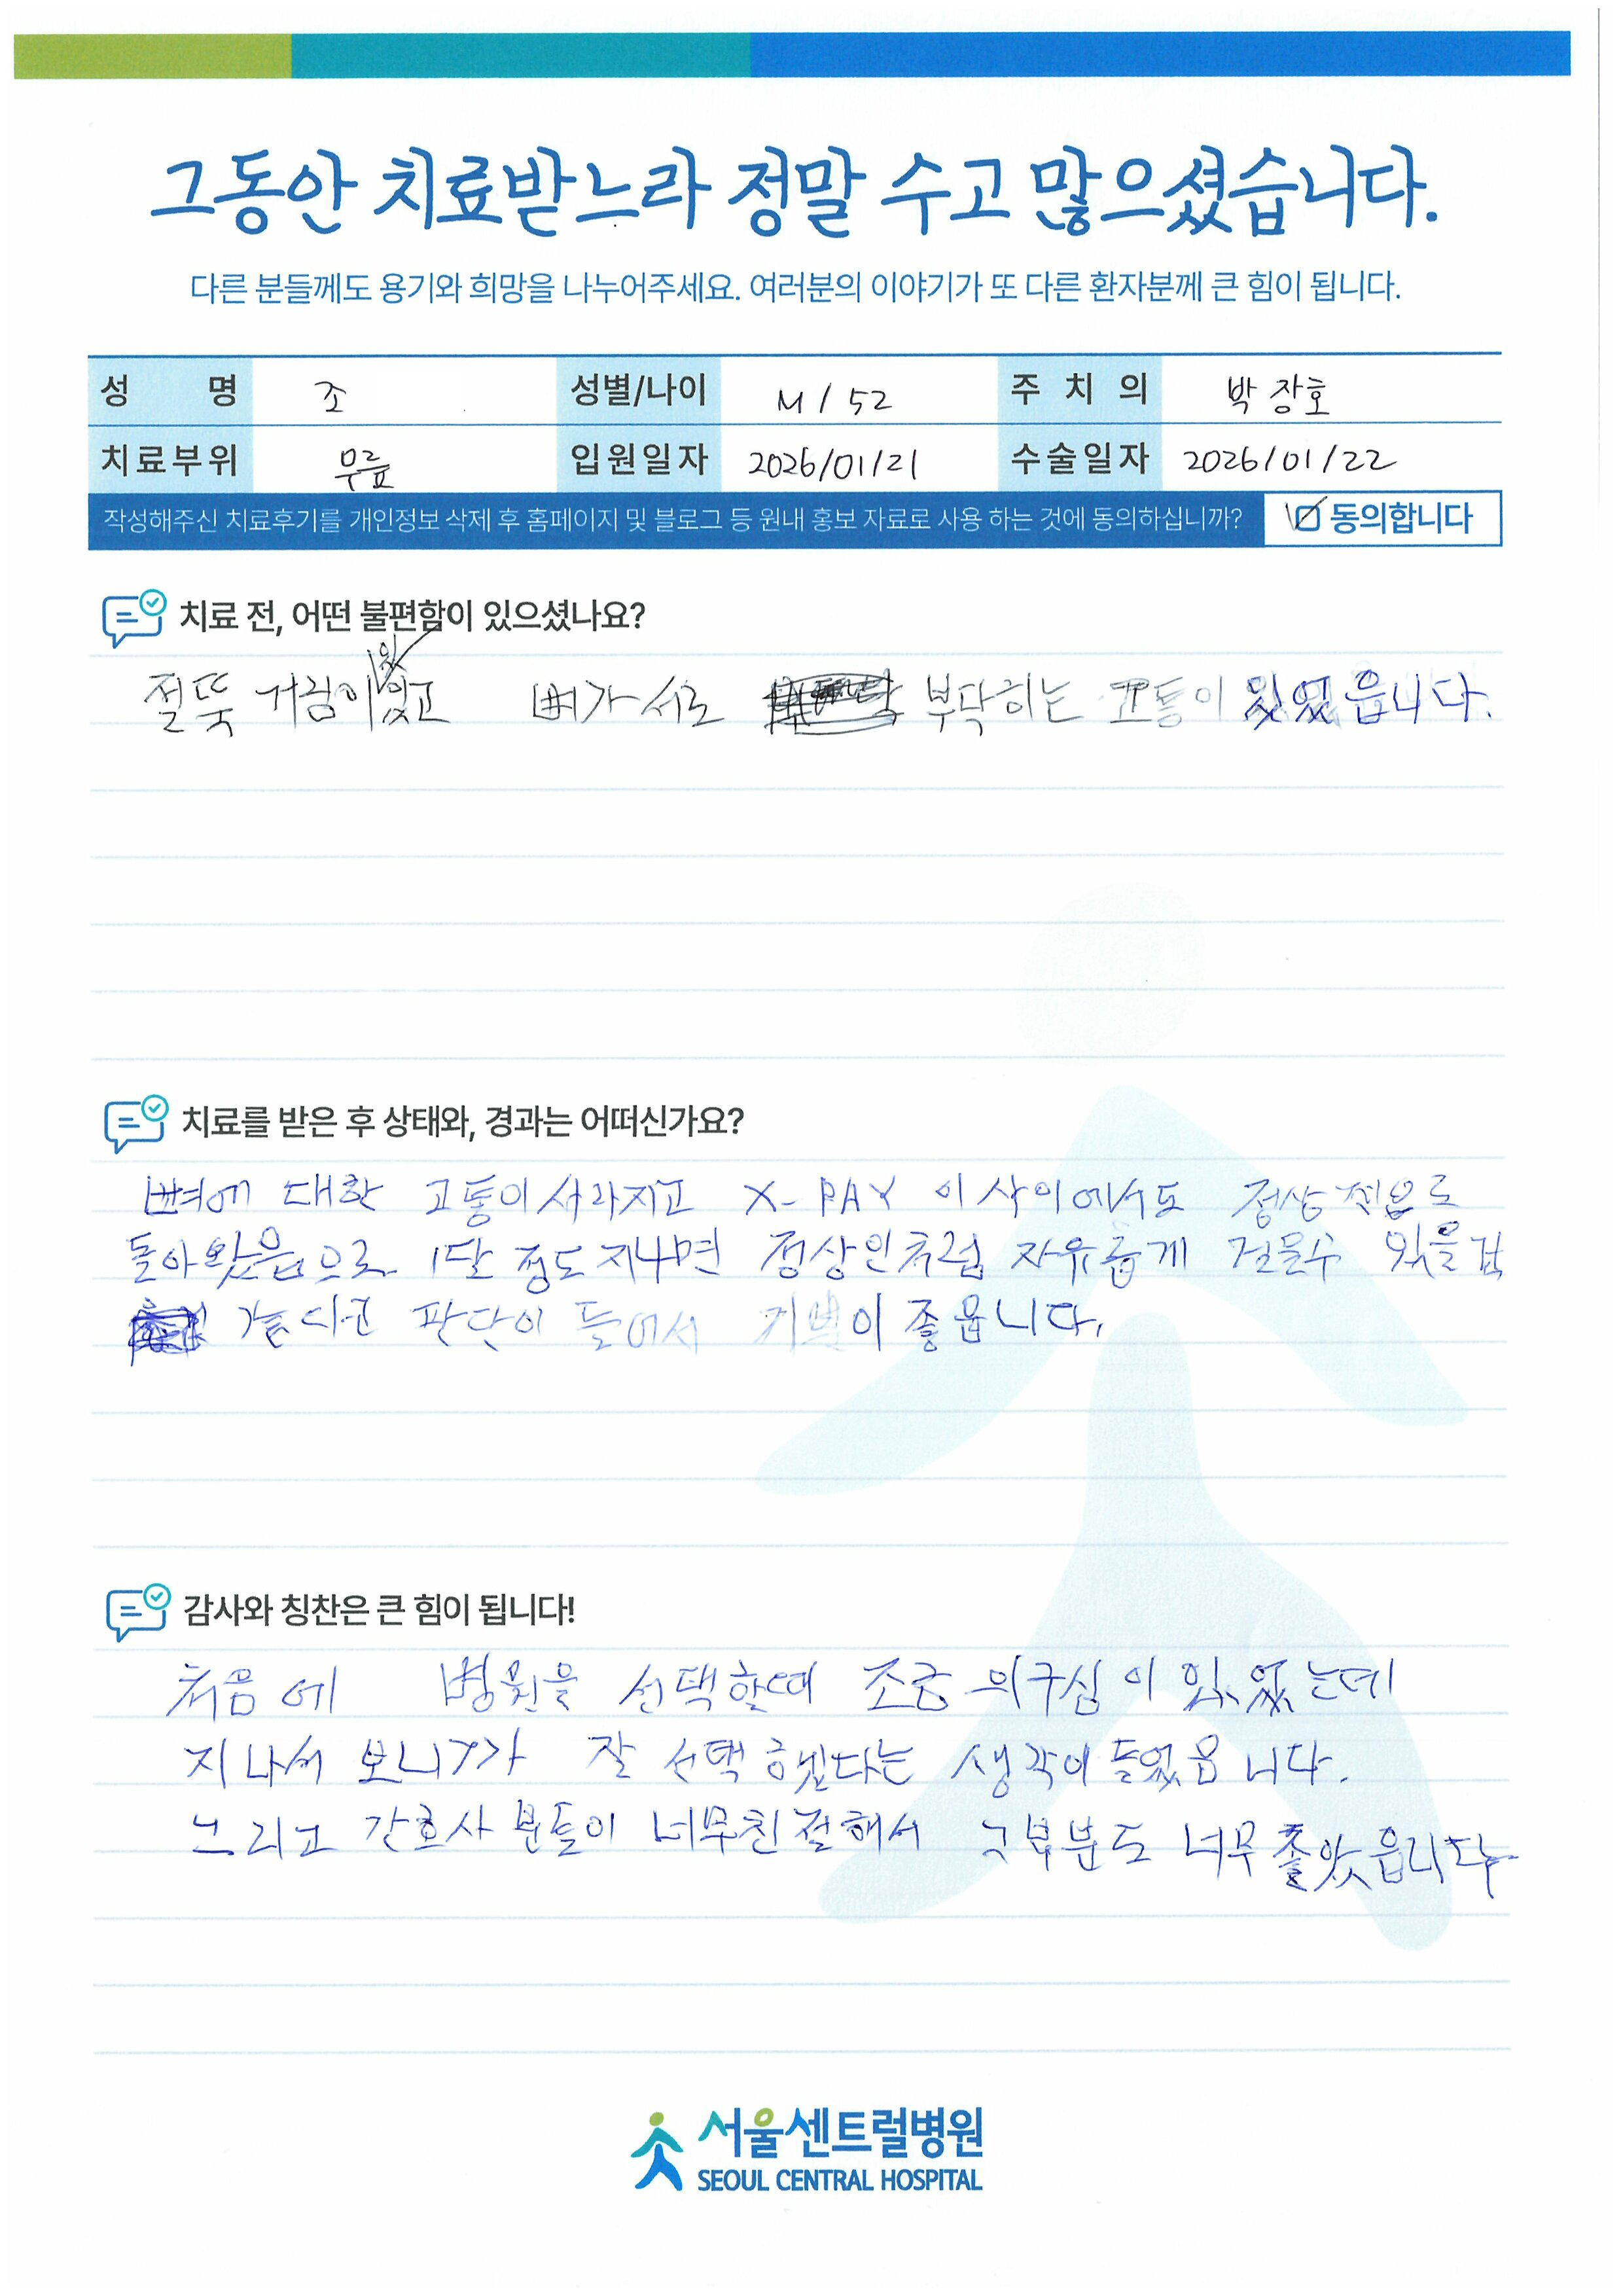 그동안 치료받느라 정말 수고 많으셨습니다.
다른 분들께도 용기와 희망을 나누어주세요. 여러분의 이야기가 또 다른 환자분께 큰 힘이 됩니다.
성 명 조 성별/나이 M / 52 주 치 의 박장호
치료부위 무릎 입원일자 2026/01/21 수술일자 2026/01/22
작성해주신 치료후기를 개인정보 삭제 후 홈페이지 및 블로그 등 원내 홍보 자료로 사용 하는 것에 동의하십니까? 동의합니다
치료 전, 어떤 불편함이 있으셨나요?
절뚝 거림이 있었고 뼈가 서로 부닥히는 고통이 있었읍니다.
치료를 받은 후 상태와, 경과는 어떠신가요?
뼈에 대한 고통이 사라지고 X-PAY 이 에서도 정상적으로
돌아왔음으로 1달 정도 지나면 정상인처럼 자유롭게 걸을수 있을것
같다고 판단이 들어서 기쁨이 좋읍니다.
감사와 칭찬은 큰 힘이 됩니다!
처음에 병원을 선택할때 조금 의구심이 있었는데
지나서 보니까 잘 선택했다는 생각이 들었읍니다.
그리고 간호사 분들이 너무친절해서 그부분도 너무 좋았읍니다
서울센트럴병원
SEOUL CENTRAL HOSPITAL